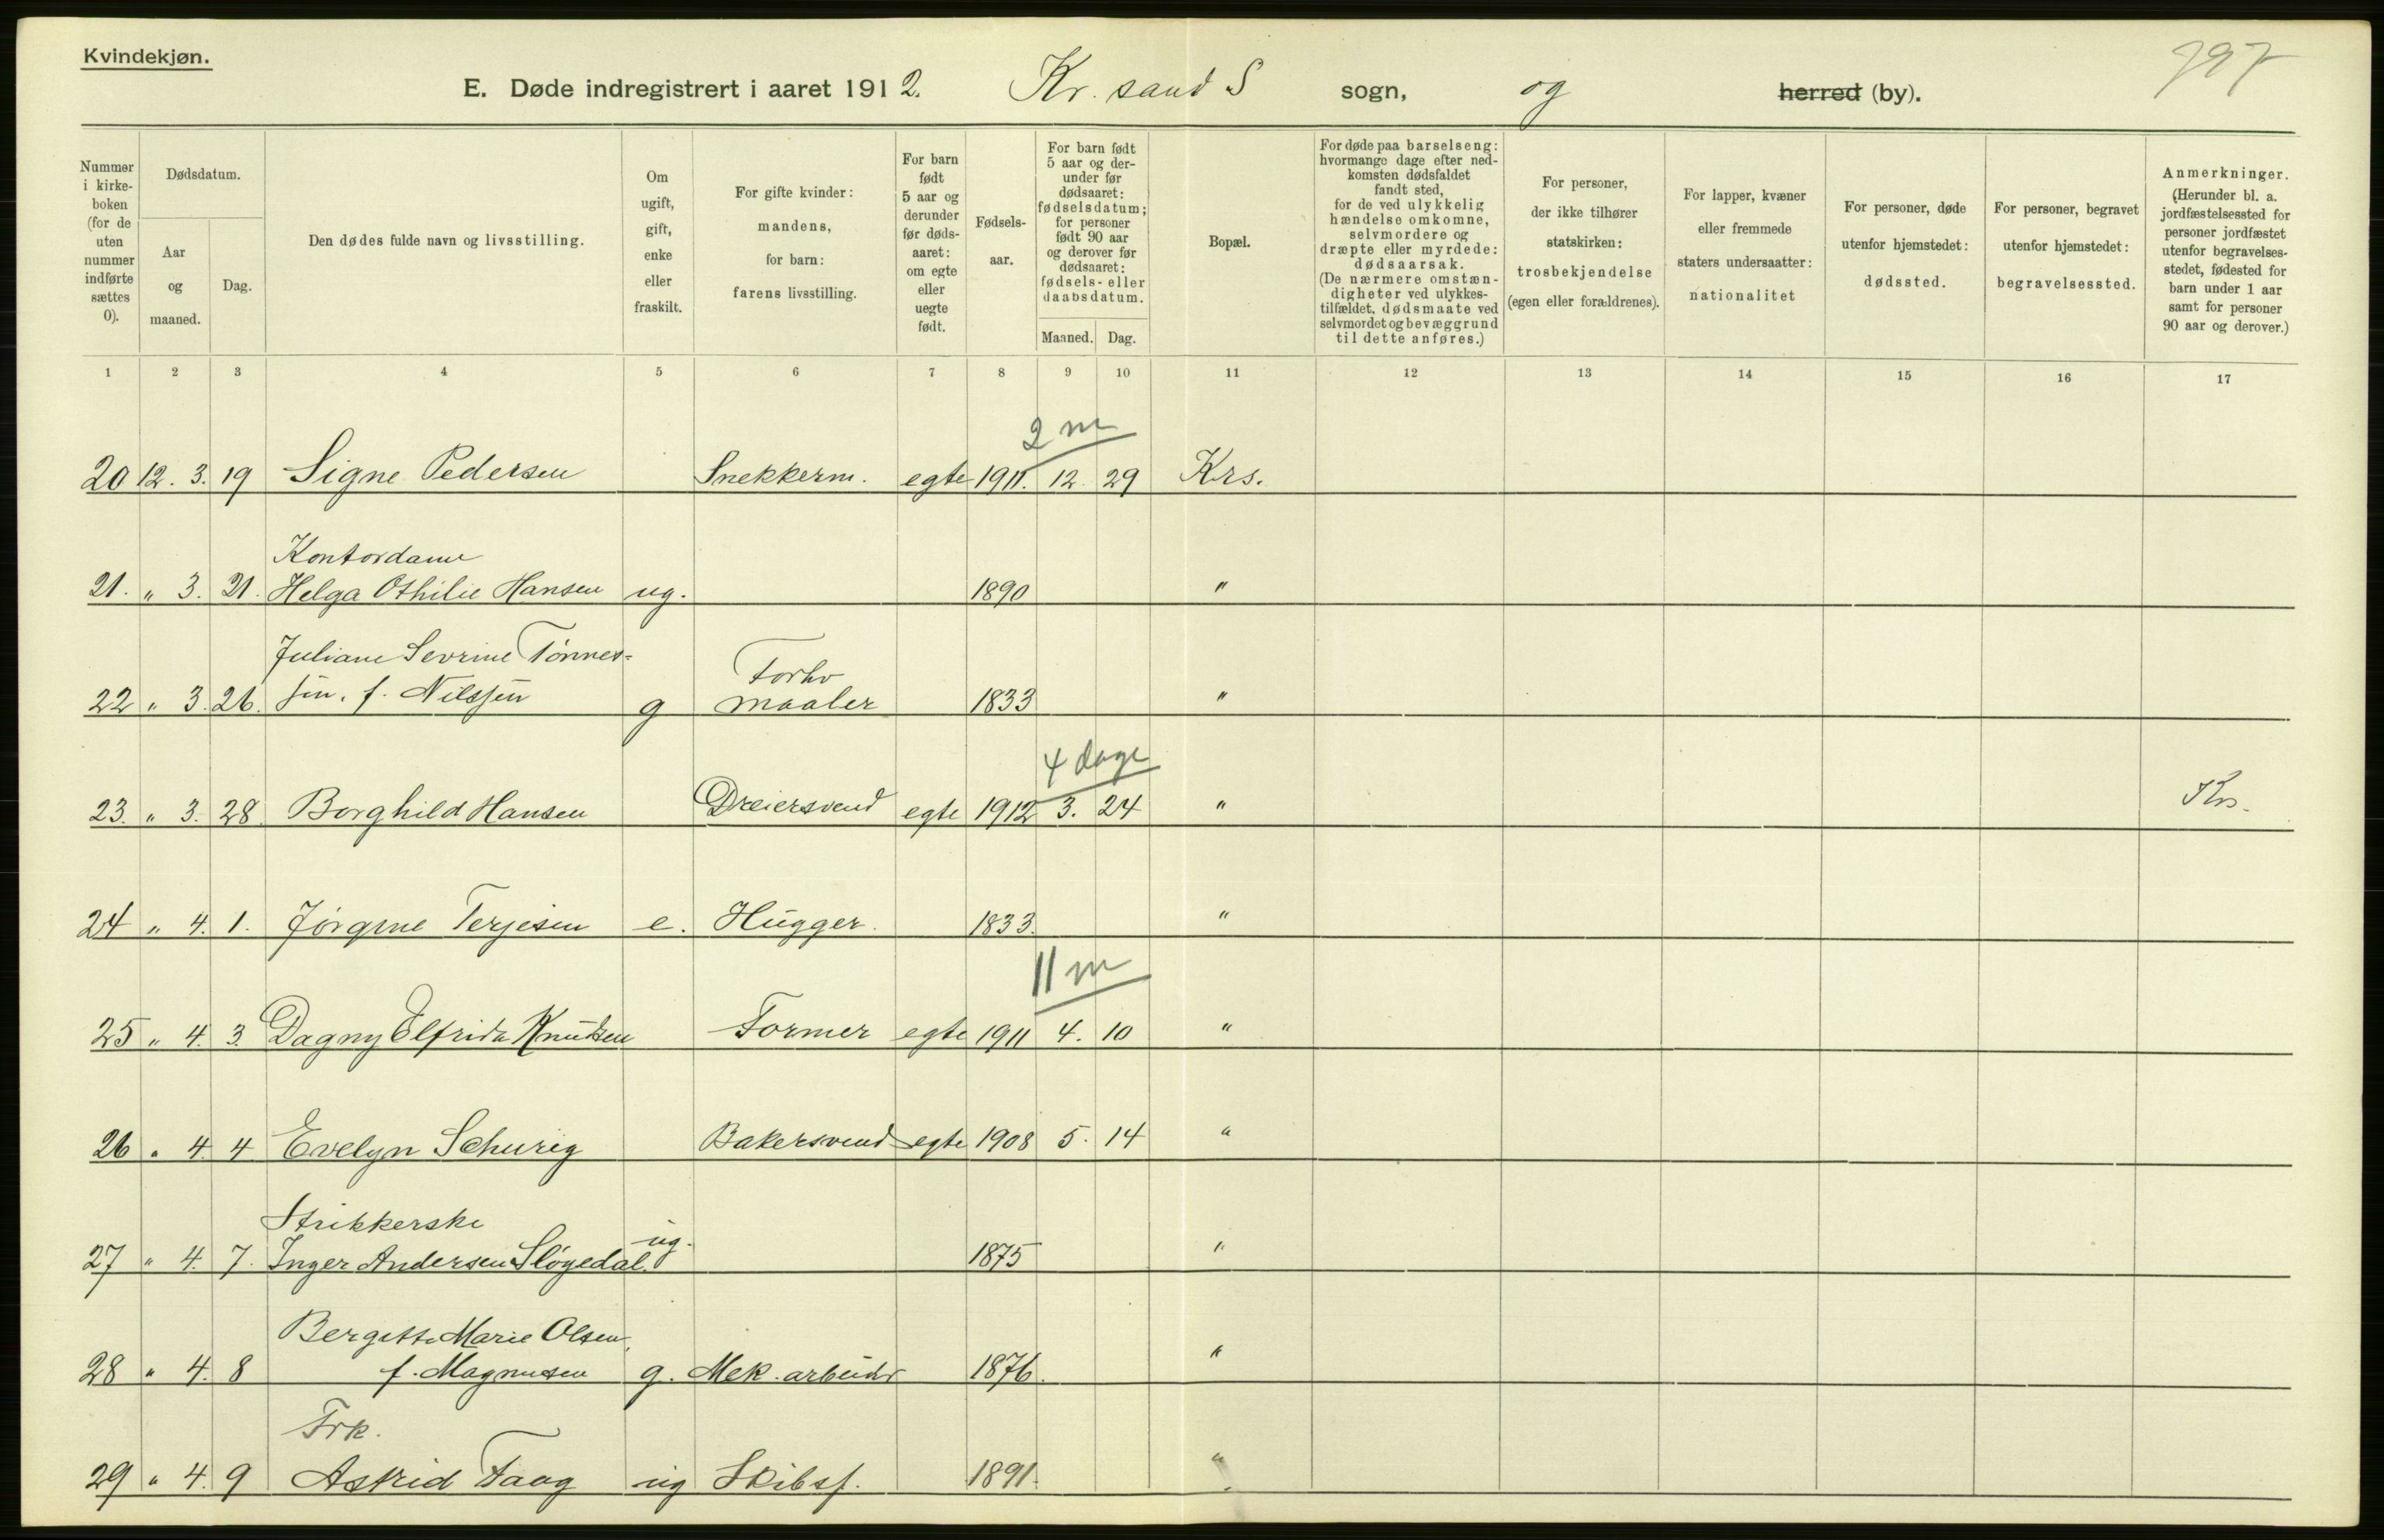 Kvindekjøn.
E. Døde indregistrert i aaret 1912. Kr.sand S sogn, og herred (by). 797
Nummer i kirkeboken (for de uten nummer indførte sættes 0).
Dødsdatum.
Aar og maaned.
Dag.
Den dødes fulde navn og livsstilling.
Om ugift, gift, enke eller fraskilt.
For gifte kvinder: mandens, for barn: farens livsstilling.
For barn født 5 aar og derunder før dødsaaret: om egte eller uegte født.
Fødselsaar.
For barn født 5 aar og derunder før dødsaaret: fødselsdatum; for personer født 90 aar og derover før dødsaaret: fødsels- eller daabsdatum.
Maaned. Dag.
Bopæl.
For døde paa barselseng: hvormange dage efter nedkomsten dødsfaldet fandt sted, for de ved ulykkelig hændelse omkomne, selvmordere og dræpte eller myrdede: dødsaarsak. (De nærmere omstændigheter ved ulykkestilfældet, dødsmaate ved selvmordet og bevæggrund til dette anføres.)
For personer, der ikke tilhører statskirken: trosbekjendelse (egen eller forældrenes).
For lapper, kvæner eller fremmede staters undersaatter: nationalitet
For personer, døde utenfor hjemstedet: dødssted.
For personer, begravet utenfor hjemstedet: begravelsessted.
Anmerkninger. (Herunder bl. a. jordfæstelsessted for personer jordfæstet utenfor begravelsesstedet, fødested for barn under 1 aar samt for personer 90 aar og derover.)
1 2 3 4 5 6 7 8 9 10 11 12 13 14 15 16 17
2 m
20 12. 3. 19 Signe Pedersen Snekkerm. egte 1911. 12. 29 Krs.
Kontordame
21. " 3. 21. Helga Othilie Hansen ug. 1890 "
Juliane Sevrine Tønnes=
Forhv
22 " 3. 26. sen. f. Nilssen g maaler 1833 "
4 dage
23. " 3. 28. Borghild Hansen Dreiersvend egte 1912 3. 24 " Krs.
24 " 4. 1. Jørgine Terjesen e. Hugger. 1833. "
11 m
25 " 4. 3. Dagny Elfrida Knudsen Former egte 1911 4. 10 "
26 " 4. 4 Evelyn Schurig Bakersvend egte 1908 5. 14 "
Strikkerske
27 " 4. 7. Inger Andersen Sløgedal. ug. 1875 "
Bergitte Marie Olsen,
28 " 4. 8 f. Magnusen g. Mek. arbeider 1876. "
Frk.
29 " 4. 9 Astrid Faag ug Skibsf. 1891. "